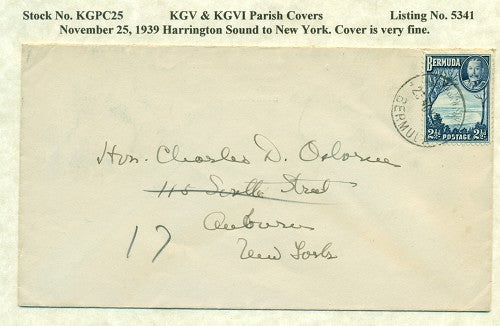 Stock No. KGPC25 KGV & KGVI Parish Covers Listing No. 5341
November 25, 1939 Harrington Sound to New York. Cover is very fine.
BERMUDA
2½ POSTAGE 2½
BERMU
Hon. Charles D. Osborne
Street
Auburn
New York
17